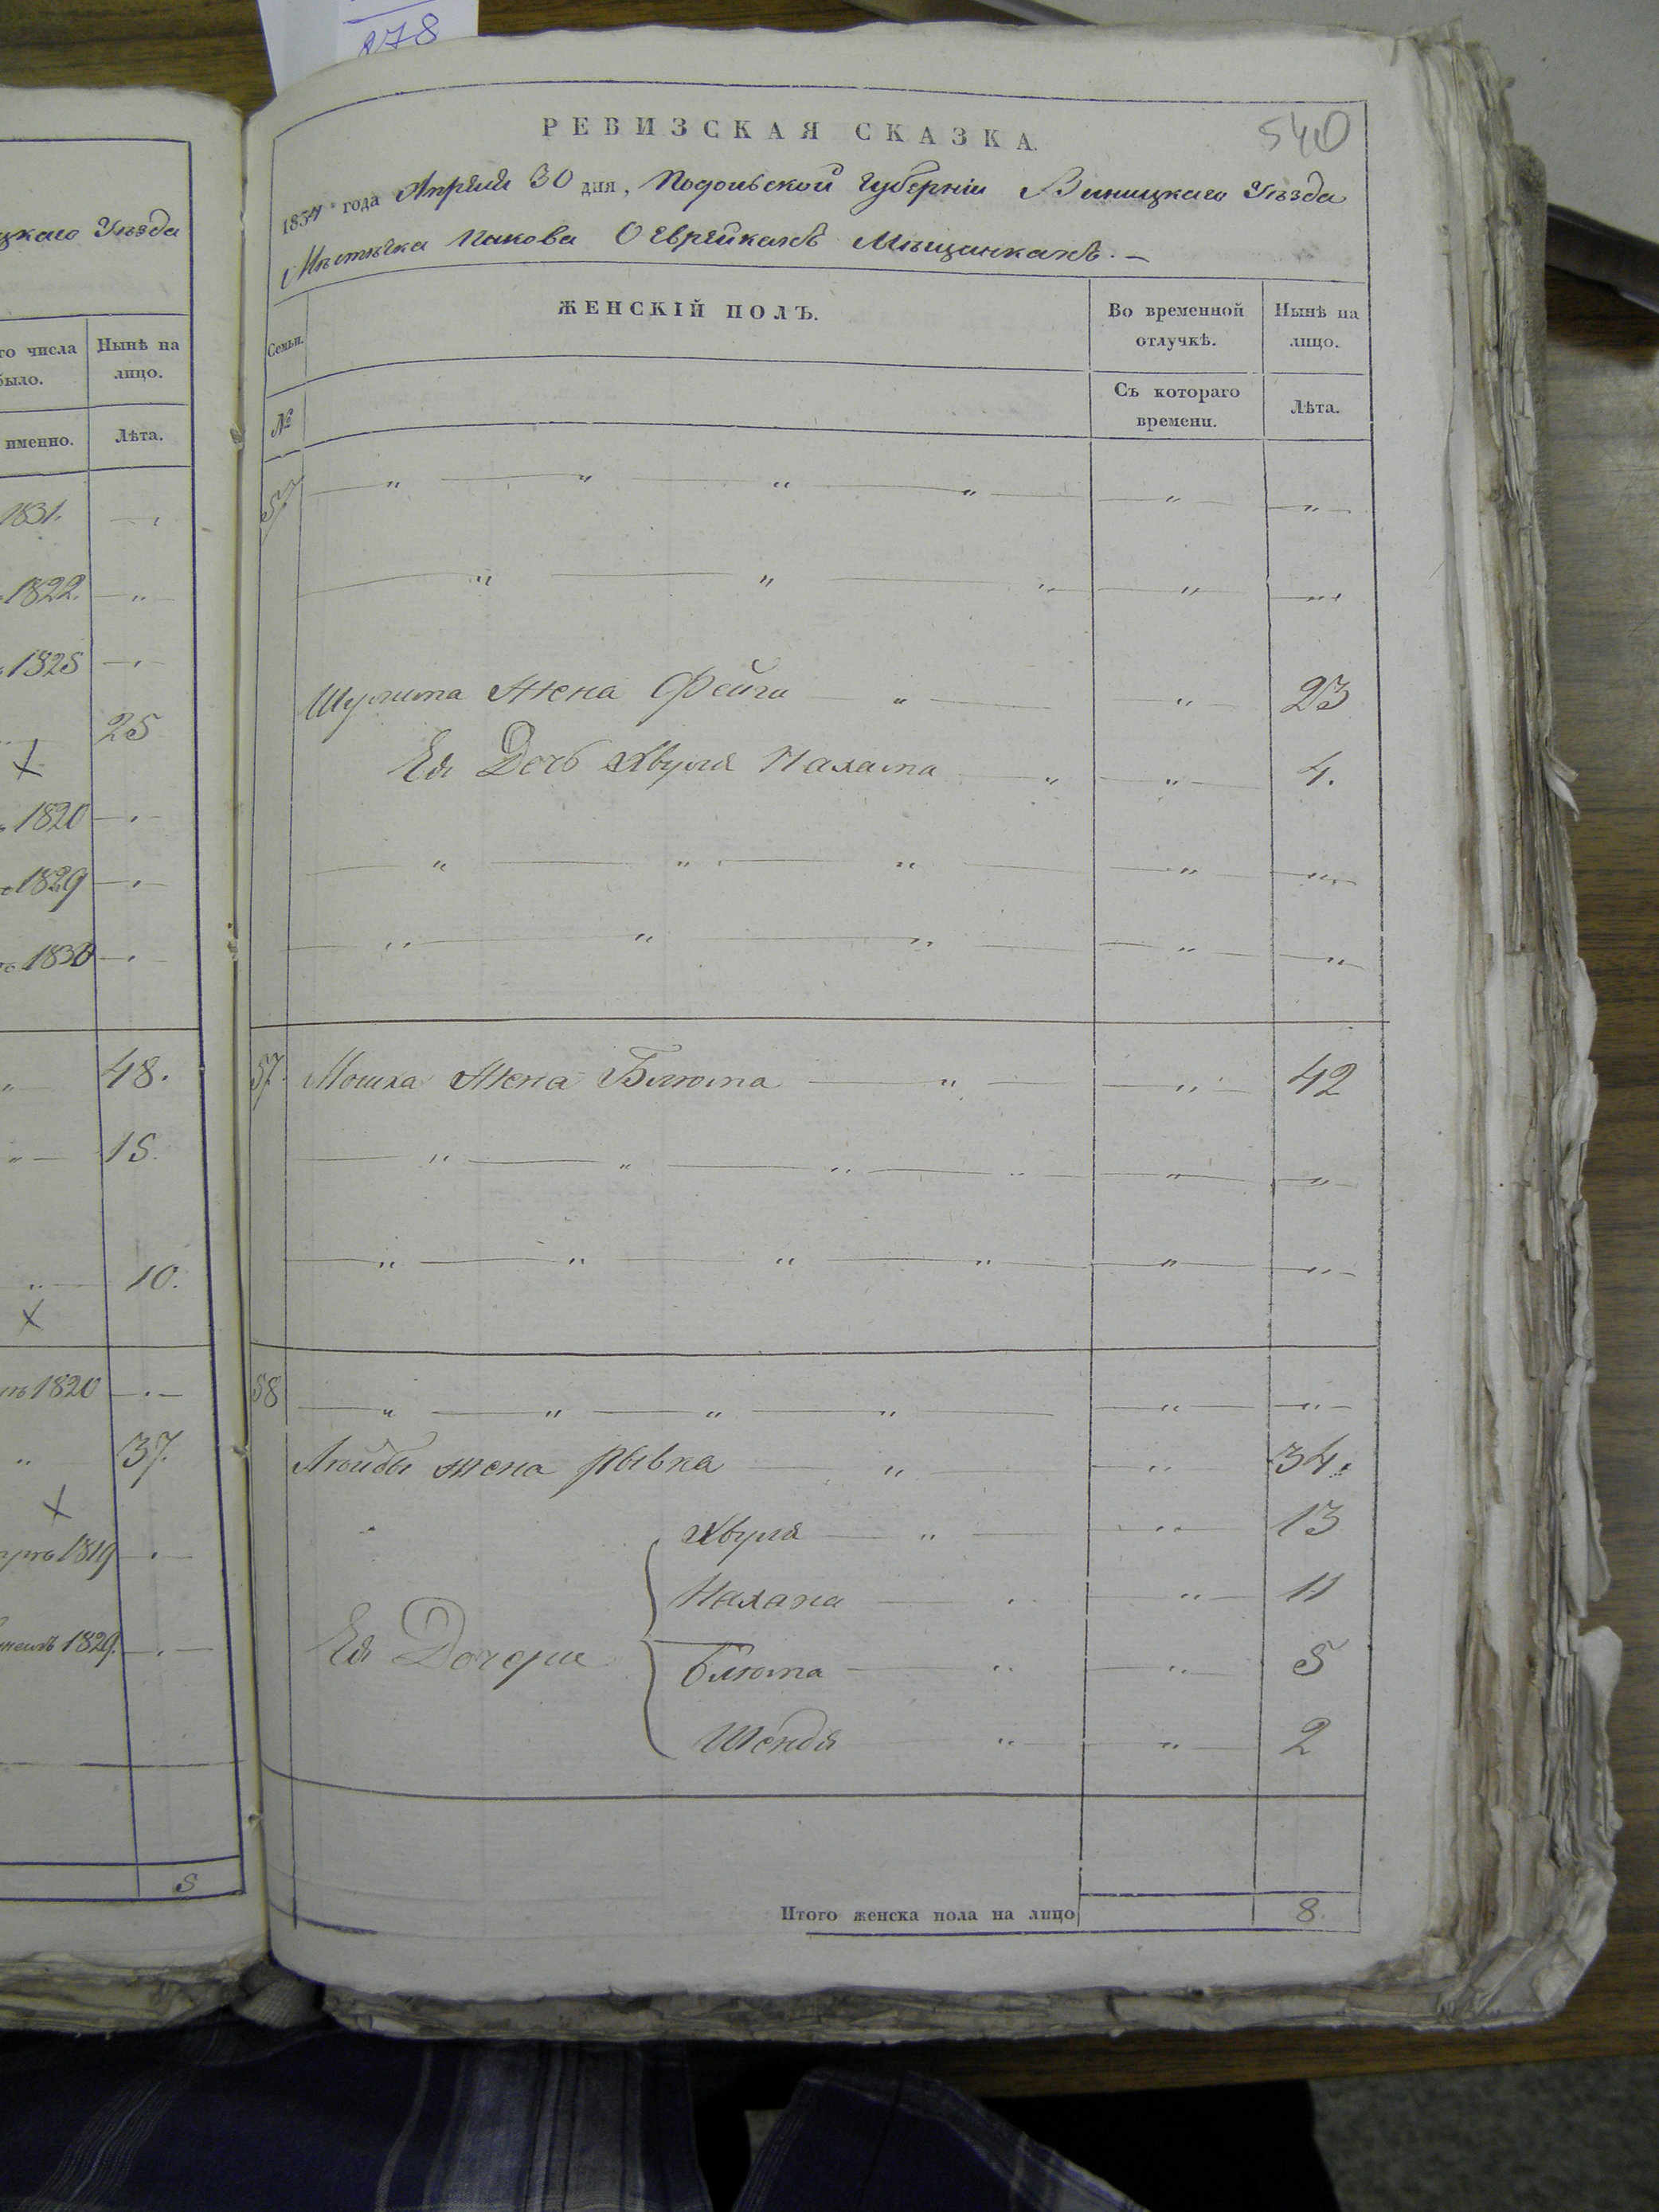 278
цкаго Уезда
го числа
было.
Нынѣ на
лицо.
именно.
Лѣта.
1831.
1822.
1825
25
1820
1829
1830
48.
15.
10.
1820
37.
1819
1829.
5
РЕВИЗСКАЯ СКАЗКА.
540
1834 года Апреля 30 дня, Подольской Губерніи Виницкаго Уезда
Мѣстечка Пикова О Еврейкахъ Мѣщанкахъ. —
Семьи.
ЖЕНСКІЙ ПОЛЪ.
Во временной
отлучкѣ.
Нынѣ на
лицо.
№
Съ котораго
времени.
Лѣта.
57
Жена Фейга — " — " — 23
Ея Дочь Хвуля — " — " — 4.
57. Мошка Жена Блюма — " — " — 42
58
Лейбы жена Рывка — " — " — 34.
Хвуля — " — " — 13
— " — 11
Ея Дочери
Блюма — " — " — 5
Шендя — " — " — 2
Итого женска пола на лицо
8.